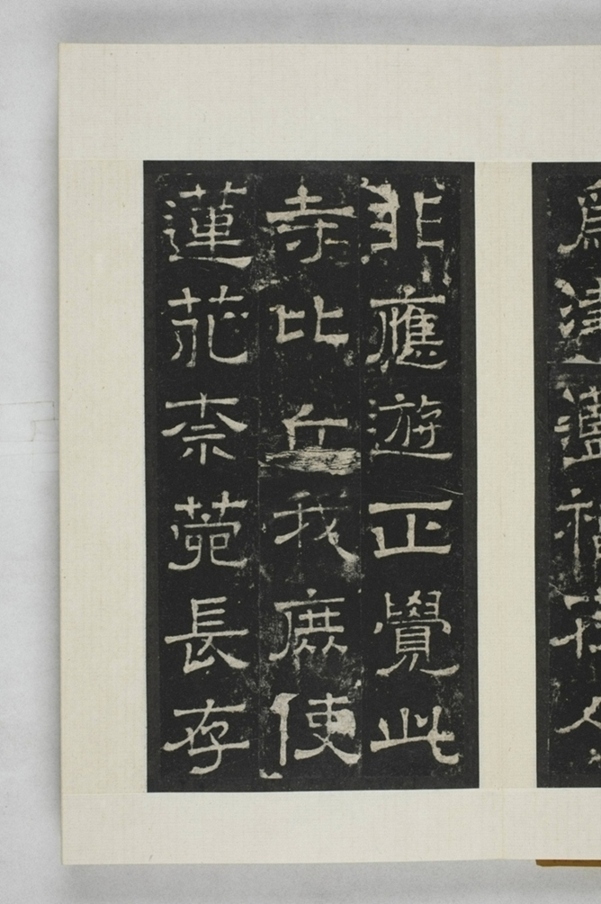 為
福
非應遊正覺此
寺比丘我庶使
蓮花柰菀長存